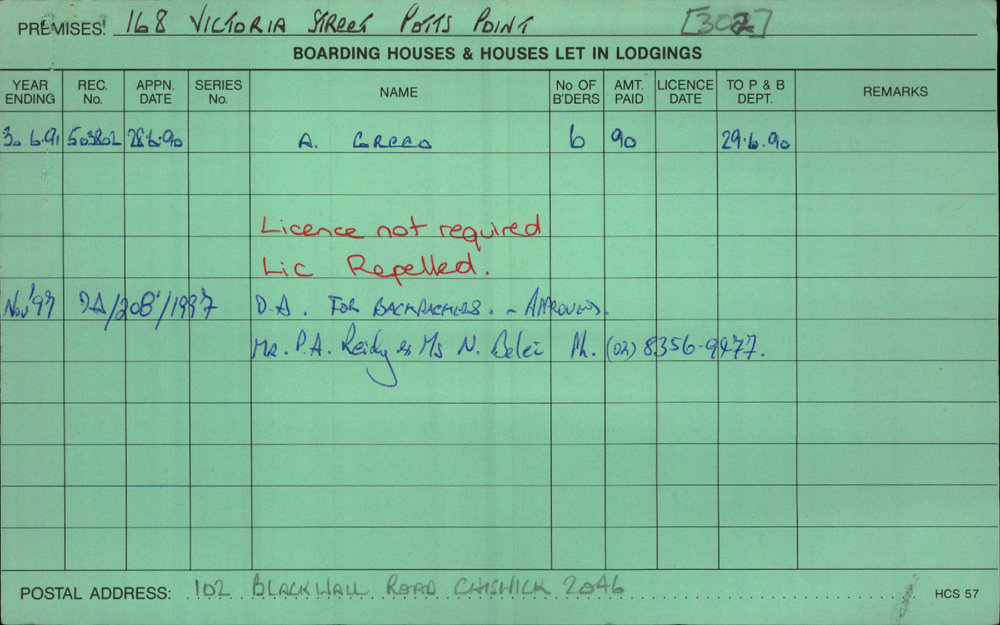 PREMISES: 168 VICTORIA STREET POTTS POINT [302]
BOARDING HOUSES & HOUSES LET IN LODGINGS
YEAR ENDING REC. No. APPN. DATE SERIES No. NAME No OF B'DERS AMT. PAID LICENCE DATE TO P & B DEPT. REMARKS
30.6.91 503802 28.6.90 A. GRECO 6 90 29.6.90
Licence not required
Lic Repelled.
Nov '97 DA/208/1997 D.A. FOR BACKPACKERS. - APPROVED.
MR. P.A. Reidy & Ms N. Ph. (02) 8356-9977.
POSTAL ADDRESS: 102 BLACKWALL ROAD CHISWICK 2046
HCS 57